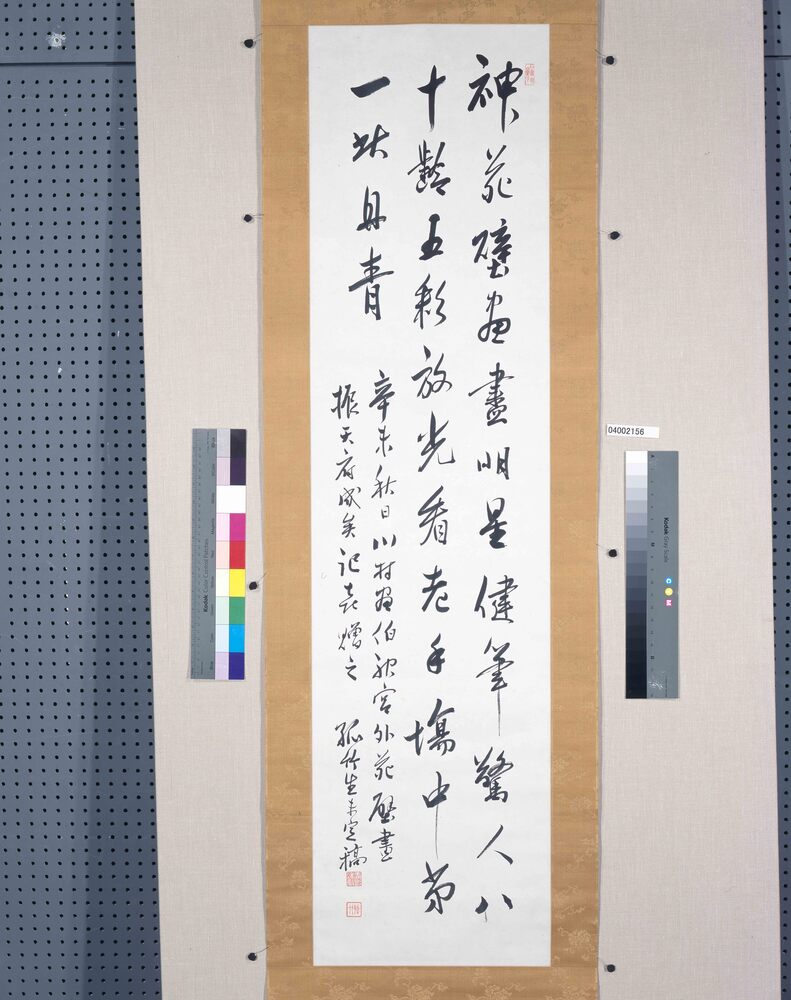 神苑壁画畫明星健筆驚人八
十齡五彩放光看老手塲中第
一状丹青
辛未秋日川村画伯神宮外苑壁畫
振天府成矣記喜贈之 孤竹生未定稿
04002156
Kodak Color Control Patches
Kodak Gray Scale
C Y M